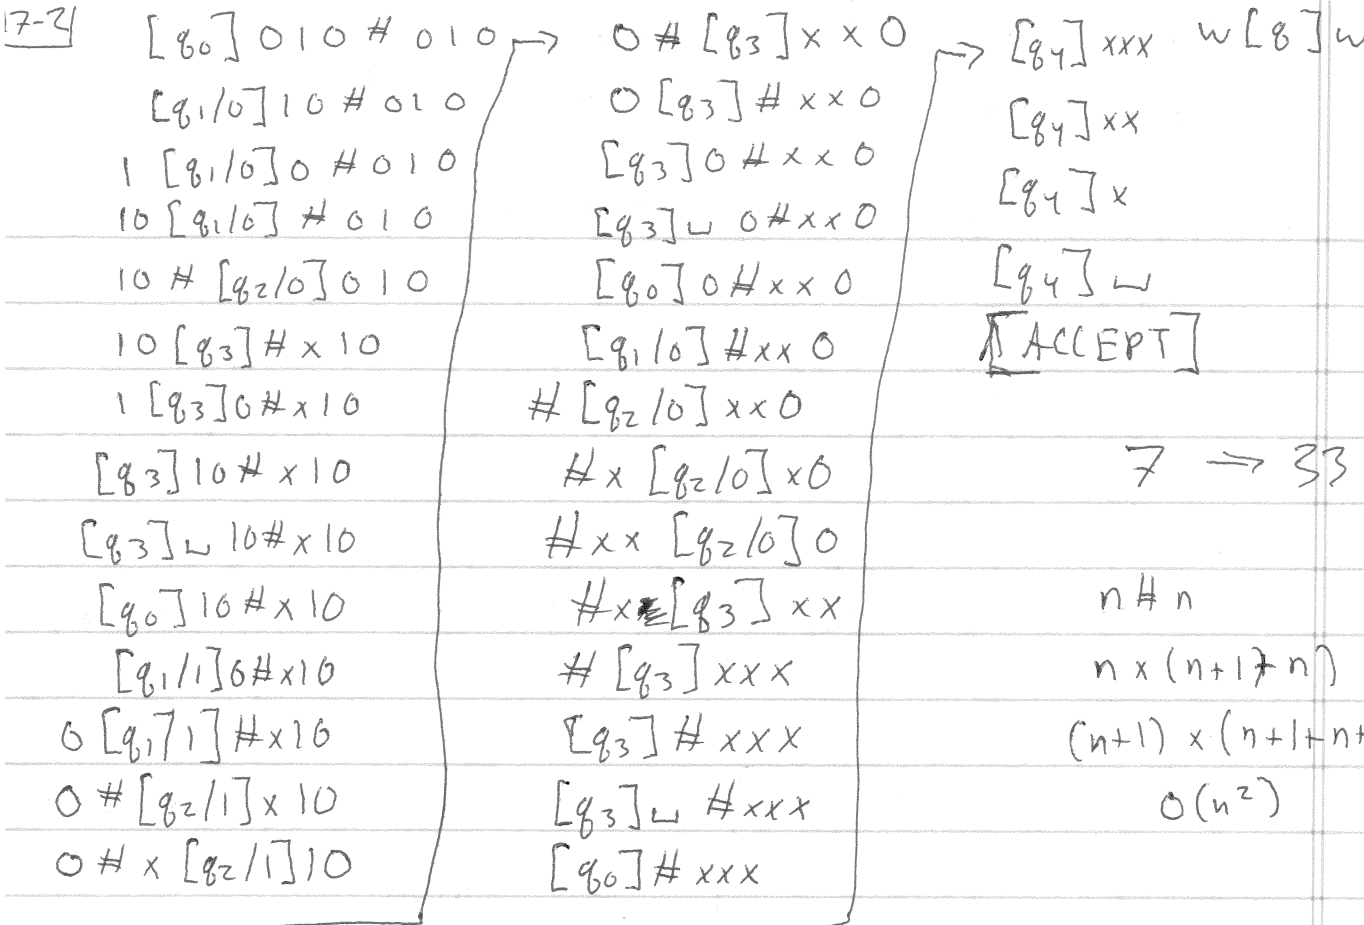 17-2
[q0] 010#010
[q1/0]10#010
1[q1/0]0#010
10[q1/0]#010
10#[q2/0]010
10[q3]#x10
1[q3]0#x10
[q3]10#x10
[q3]␣10#x10
[q0]10#x10
[q1/1]0#x10
0[q1/1]#x10
0#[q2/1]x10
0#x[q2/1]10
→ 0#[q3]xx0
0[q3]#xx0
[q3]0#xx0
[q3]␣0#xx0
[q0]0#xx0
[q1/0]#xx0
#[q2/0]xx0
#x[q2/0]x0
#xx[q2/0]0
#x[q3]xx
#[q3]xxx
[q3]#xxx
[q3]␣#xxx
[q0]#xxx
→ [q4]xxx
[q4]xx
[q4]x
[q4]␣
[ACCEPT]
w[q]w
7 → 33
n#n
n x (n+1+n)
(n+1) x (n+1+n+
O(n²)